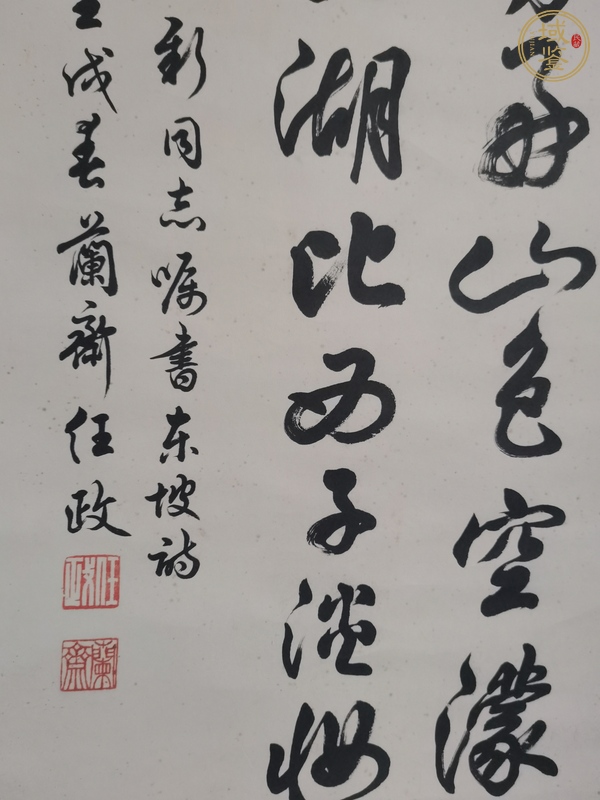 好山色空濛
湖比西子淡妆
新同志嘱書东坡詩
戌春蘭齋任政
任政
蘭齋
域鉴